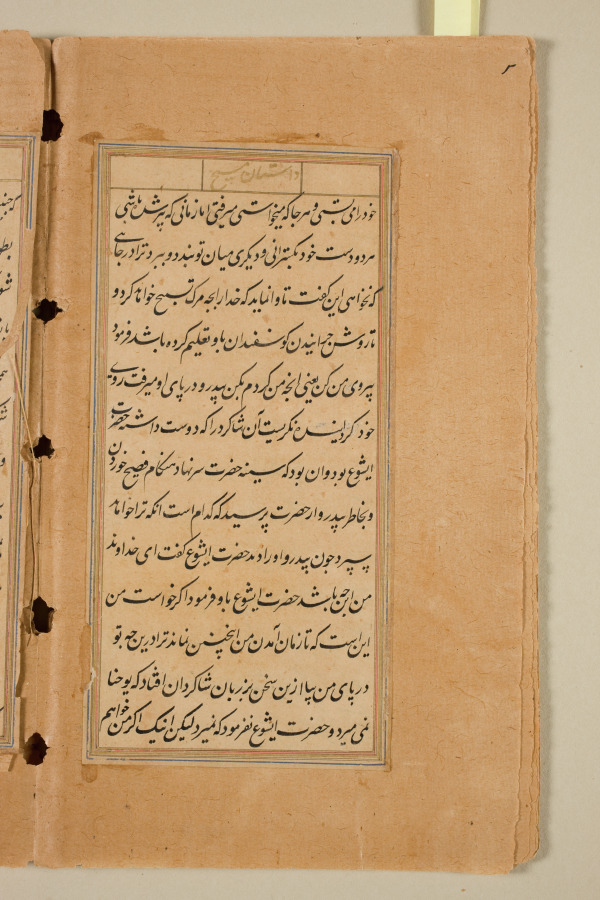 ۲
داستان مسیح
خود را می بستی و هر جا که میخواستی میرفتی اما زمانی که پیر شده باشی
هر دو دست خود بگسترانی و دیگری میان تو بندد و ببرد ترا در جاهی
که نخواهی این گفت تا وا نماید که خدا را بچه مرک تسبیح خواهد کرد و
تا روش چرانیدن گوسفندان باو تعلیم کرده باشد فرمود
پیروی من کن یعنی انچه من کردم بکن پیدرو در پای او میرفت روی
خود گردانیده نگریست آن شاکرد را که دوست داشته حضرت
ایشوع بود و ان بود که بسینه حضرت سر نهاد هنگام فصیح خوردن
و بخاطر پیدرو از حضرت پرسید که کدام است انکه ترا خواهد
سپرد چون پیدرو او را دید حضرت ایشوع گفت ای خداوند
من این چه باشد حضرت ایشوع باو فرمود اگر خواست من
این است که تا زمان آمدن من اینچنین نماند ترا درین چه تو
در پای من بیا ازین سخن بر زبان شاکردان افتاد که یوحنا
نمی میرد و حضرت ایشوع نفرمود که نمیرد لیکن اینک اگر من خواهم